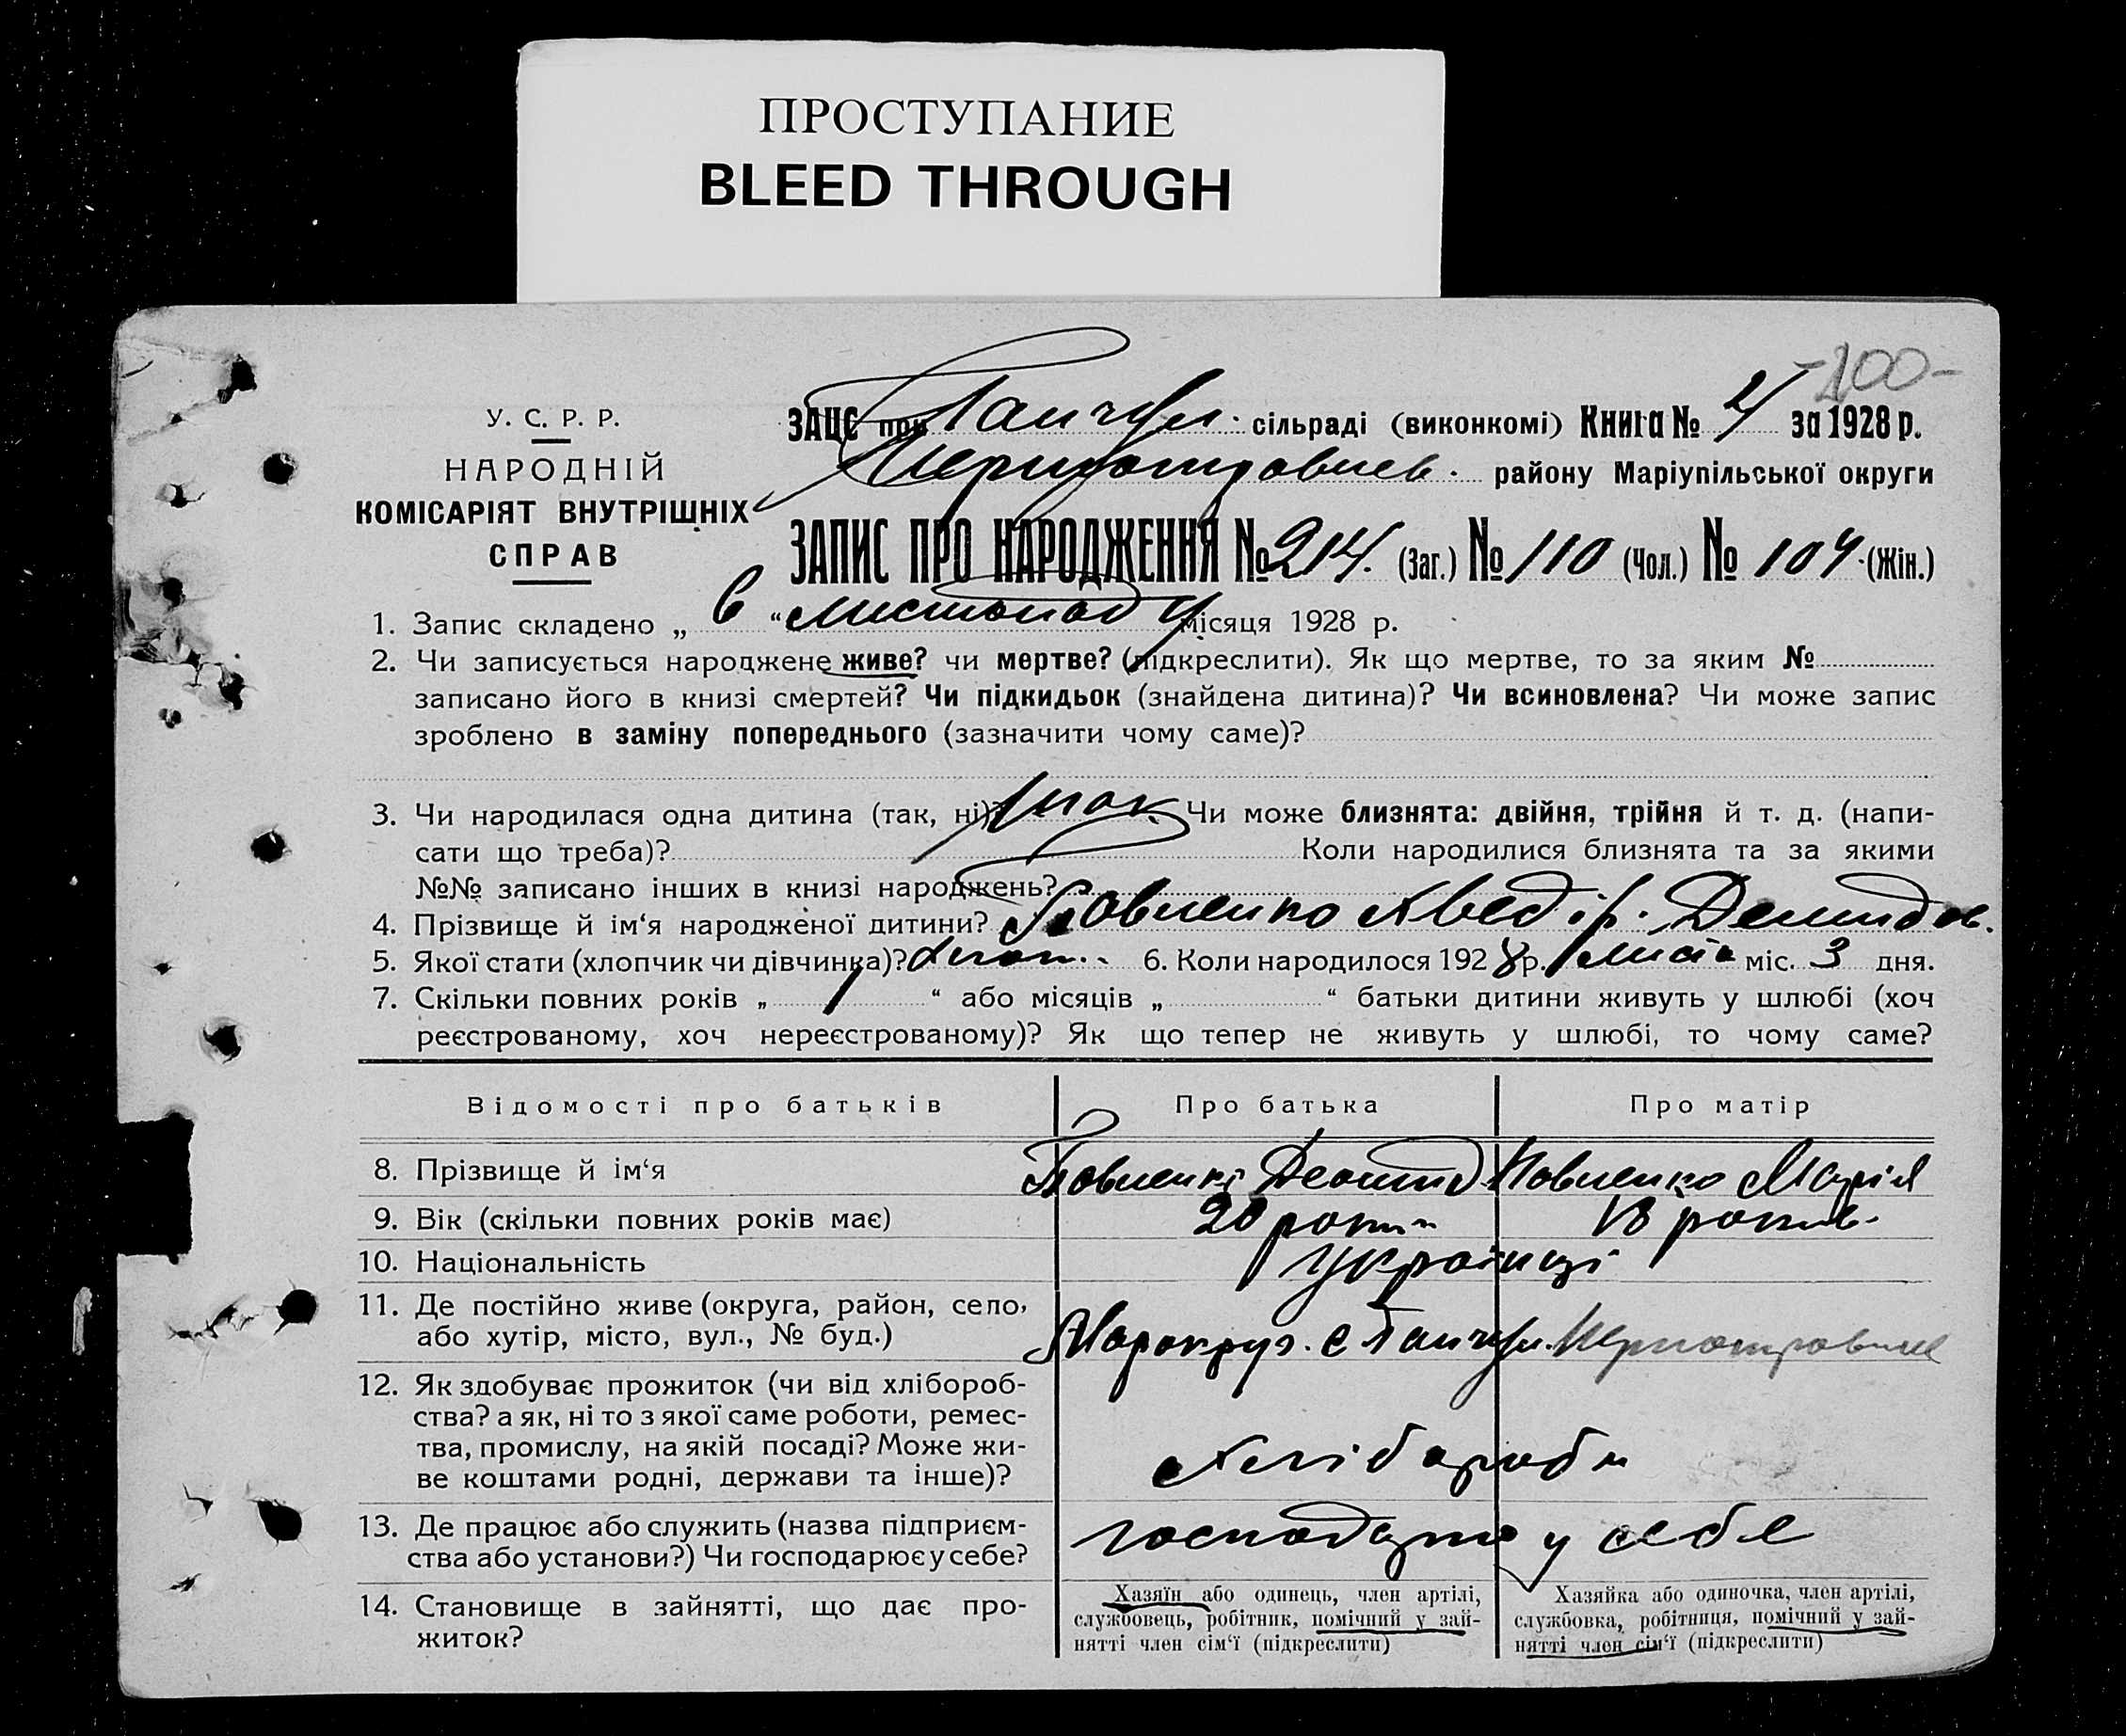 ПРОСТУПАНИЕ
BLEED THROUGH
-100-
У. С. Р. Р.
НАРОДНІЙ
КОМІСАРІЯТ ВНУТРІШНІХ
СПРАВ
ЗАЦС при сільраді (виконкомі) Книга № за 1928 р.
району Маріупільської округи
ЗАПИС ПРО НАРОДЖЕННЯ № 214. (Заг.) № 110 (Чол.) № 104 (Жін.)
1. Запис складено „ 6 “ листопаду місяця 1928 р.
2. Чи записується народжене живе? чи мертве? (підкреслити). Як що мертве, то за яким №
записано його в книзі смертей? Чи підкидьок (знайдена дитина)? Чи всиновлена? Чи може запис
зроблено в заміну попереднього (зазначити чому саме)?
3. Чи народилася одна дитина (так, ні)? так Чи може близнята: двійня, трійня й т. д. (напи-
сати що треба)? Коли народилися близнята та за якими
№№ записано інших в книзі народжень?
4. Прізвище й ім‘я народженої дитини? Павленко Хведір Демидов.
5. Якої статі (хлопчик чи дівчинка)? 6. Коли народилося 1928 р. міс. 3 дня.
7. Скільки повних років „ 1 “ або місяців „ “ батьки дитини живуть у шлюбі (хоч
реєстрованому, хоч нереєстрованому)? Як що тепер не живуть у шлюбі, то чому саме?
Відомості про батьків Про батька Про матір
8. Прізвище й ім‘я Павленко Демид Павленко Марія
9. Вік (скільки повних років має) 20 років 18 років
10. Національність українці
11. Де постійно живе (округа, район, село,
або хутір, місто, вул., № буд.)
12. Як здобуває прожиток (чи від хлібороб-
ства? а як, ні то з якої саме роботи, ремес-
тва, промислу, на якій посаді? Може жи-
ве коштами родні, держави та інше)? Хлібороби
13. Де працює або служить (назва підприєм-
ства або установи?) Чи господарює у себе? у себе
14. Становище в зайнятті, що дає про-
житок?
Хазяїн або одинець, член артілі,
службовець, робітник, помічний у зай-
нятті член сім‘ї (підкреслити)
Хазяйка або одиночка, член артілі,
службовка, робітниця, помічний у зай-
нятті член сім‘ї (підкреслити)